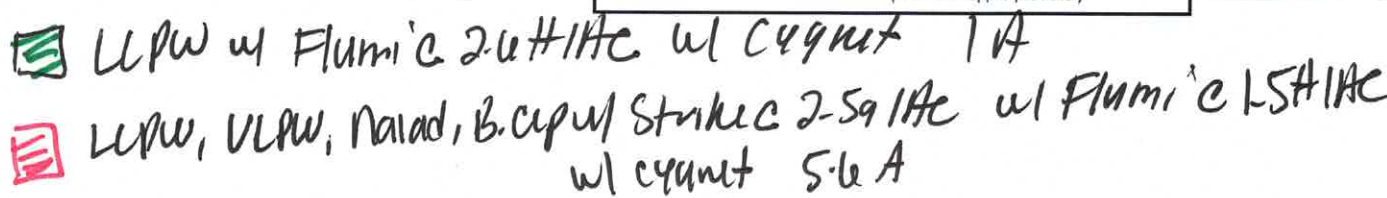 LLPW w/ Flumi @ 2.6#/Ac w/ Cygnet 1 A
LLPW, VLPW, Naiad, B.cap w/ Strike @ 2.5g/Ac w/ Flumi @ 1.5#/Ac
w/ cygnet 5.6 A